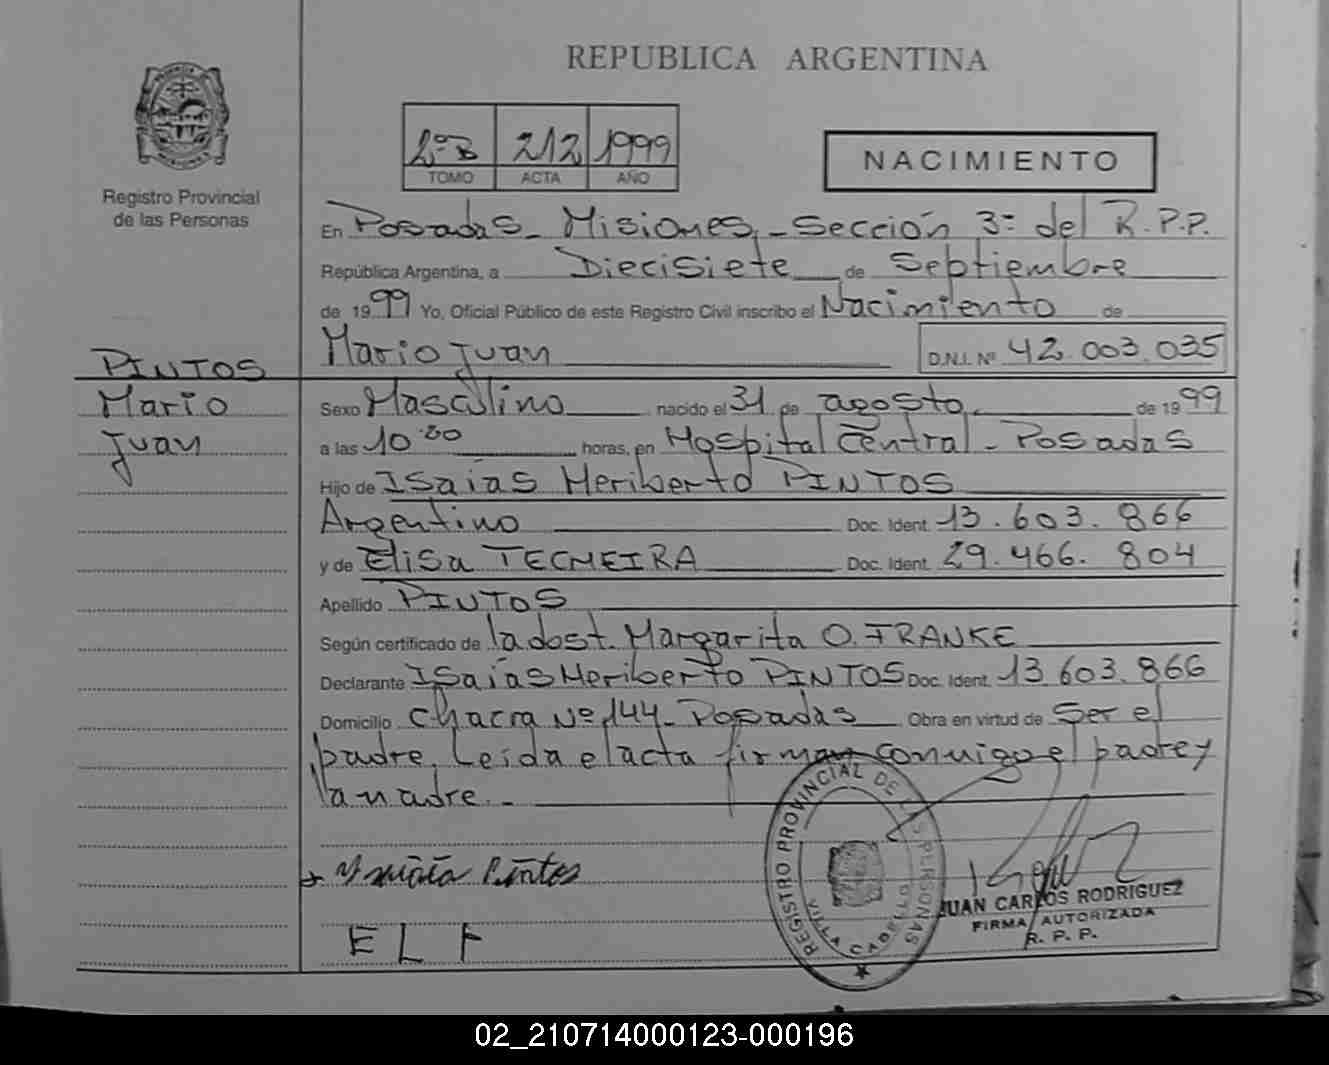 REPUBLICA ARGENTINA
Registro Provincial
de las Personas
2º B 212 1999
TOMO ACTA AÑO
NACIMIENTO
En Posadas - Misiones - Sección 3= del R.P.P.
República Argentina, a Diecisiete de Septiembre
de 1999 Yo, Oficial Público de este Registro Civil inscribo el Nacimiento de
Mario Juan D.N.I. Nº 42.003.035
PINTOS
Mario
Juan
Sexo Masculino nacido el 31 de agosto de 1999
a las 10 horas, en Hospital Central - Posadas
Hijo de Isaías Heriberto PINTOS
Argentino Doc. Ident. 13.603.866
y de Elisa Doc. Ident. 29.466.804
Apellido PINTOS
Según certificado de la obst. Margarita O. FRANKE
Declarante Isaías Heriberto PINTOS Doc. Ident. 13 603.866
Domicilio Chacra Nº 144 - Posadas Obra en virtud de Ser el
padre. Leída el acta firman conmigo el padre y
la madre. -
Pintos
E L F
REGISTRO PROVINCIAL DE LAS PERSONAS
VILLA CABELLO
JUAN CARLOS RODRIGUEZ
FIRMA AUTORIZADA
R. P. P.
02_210714000123-000196